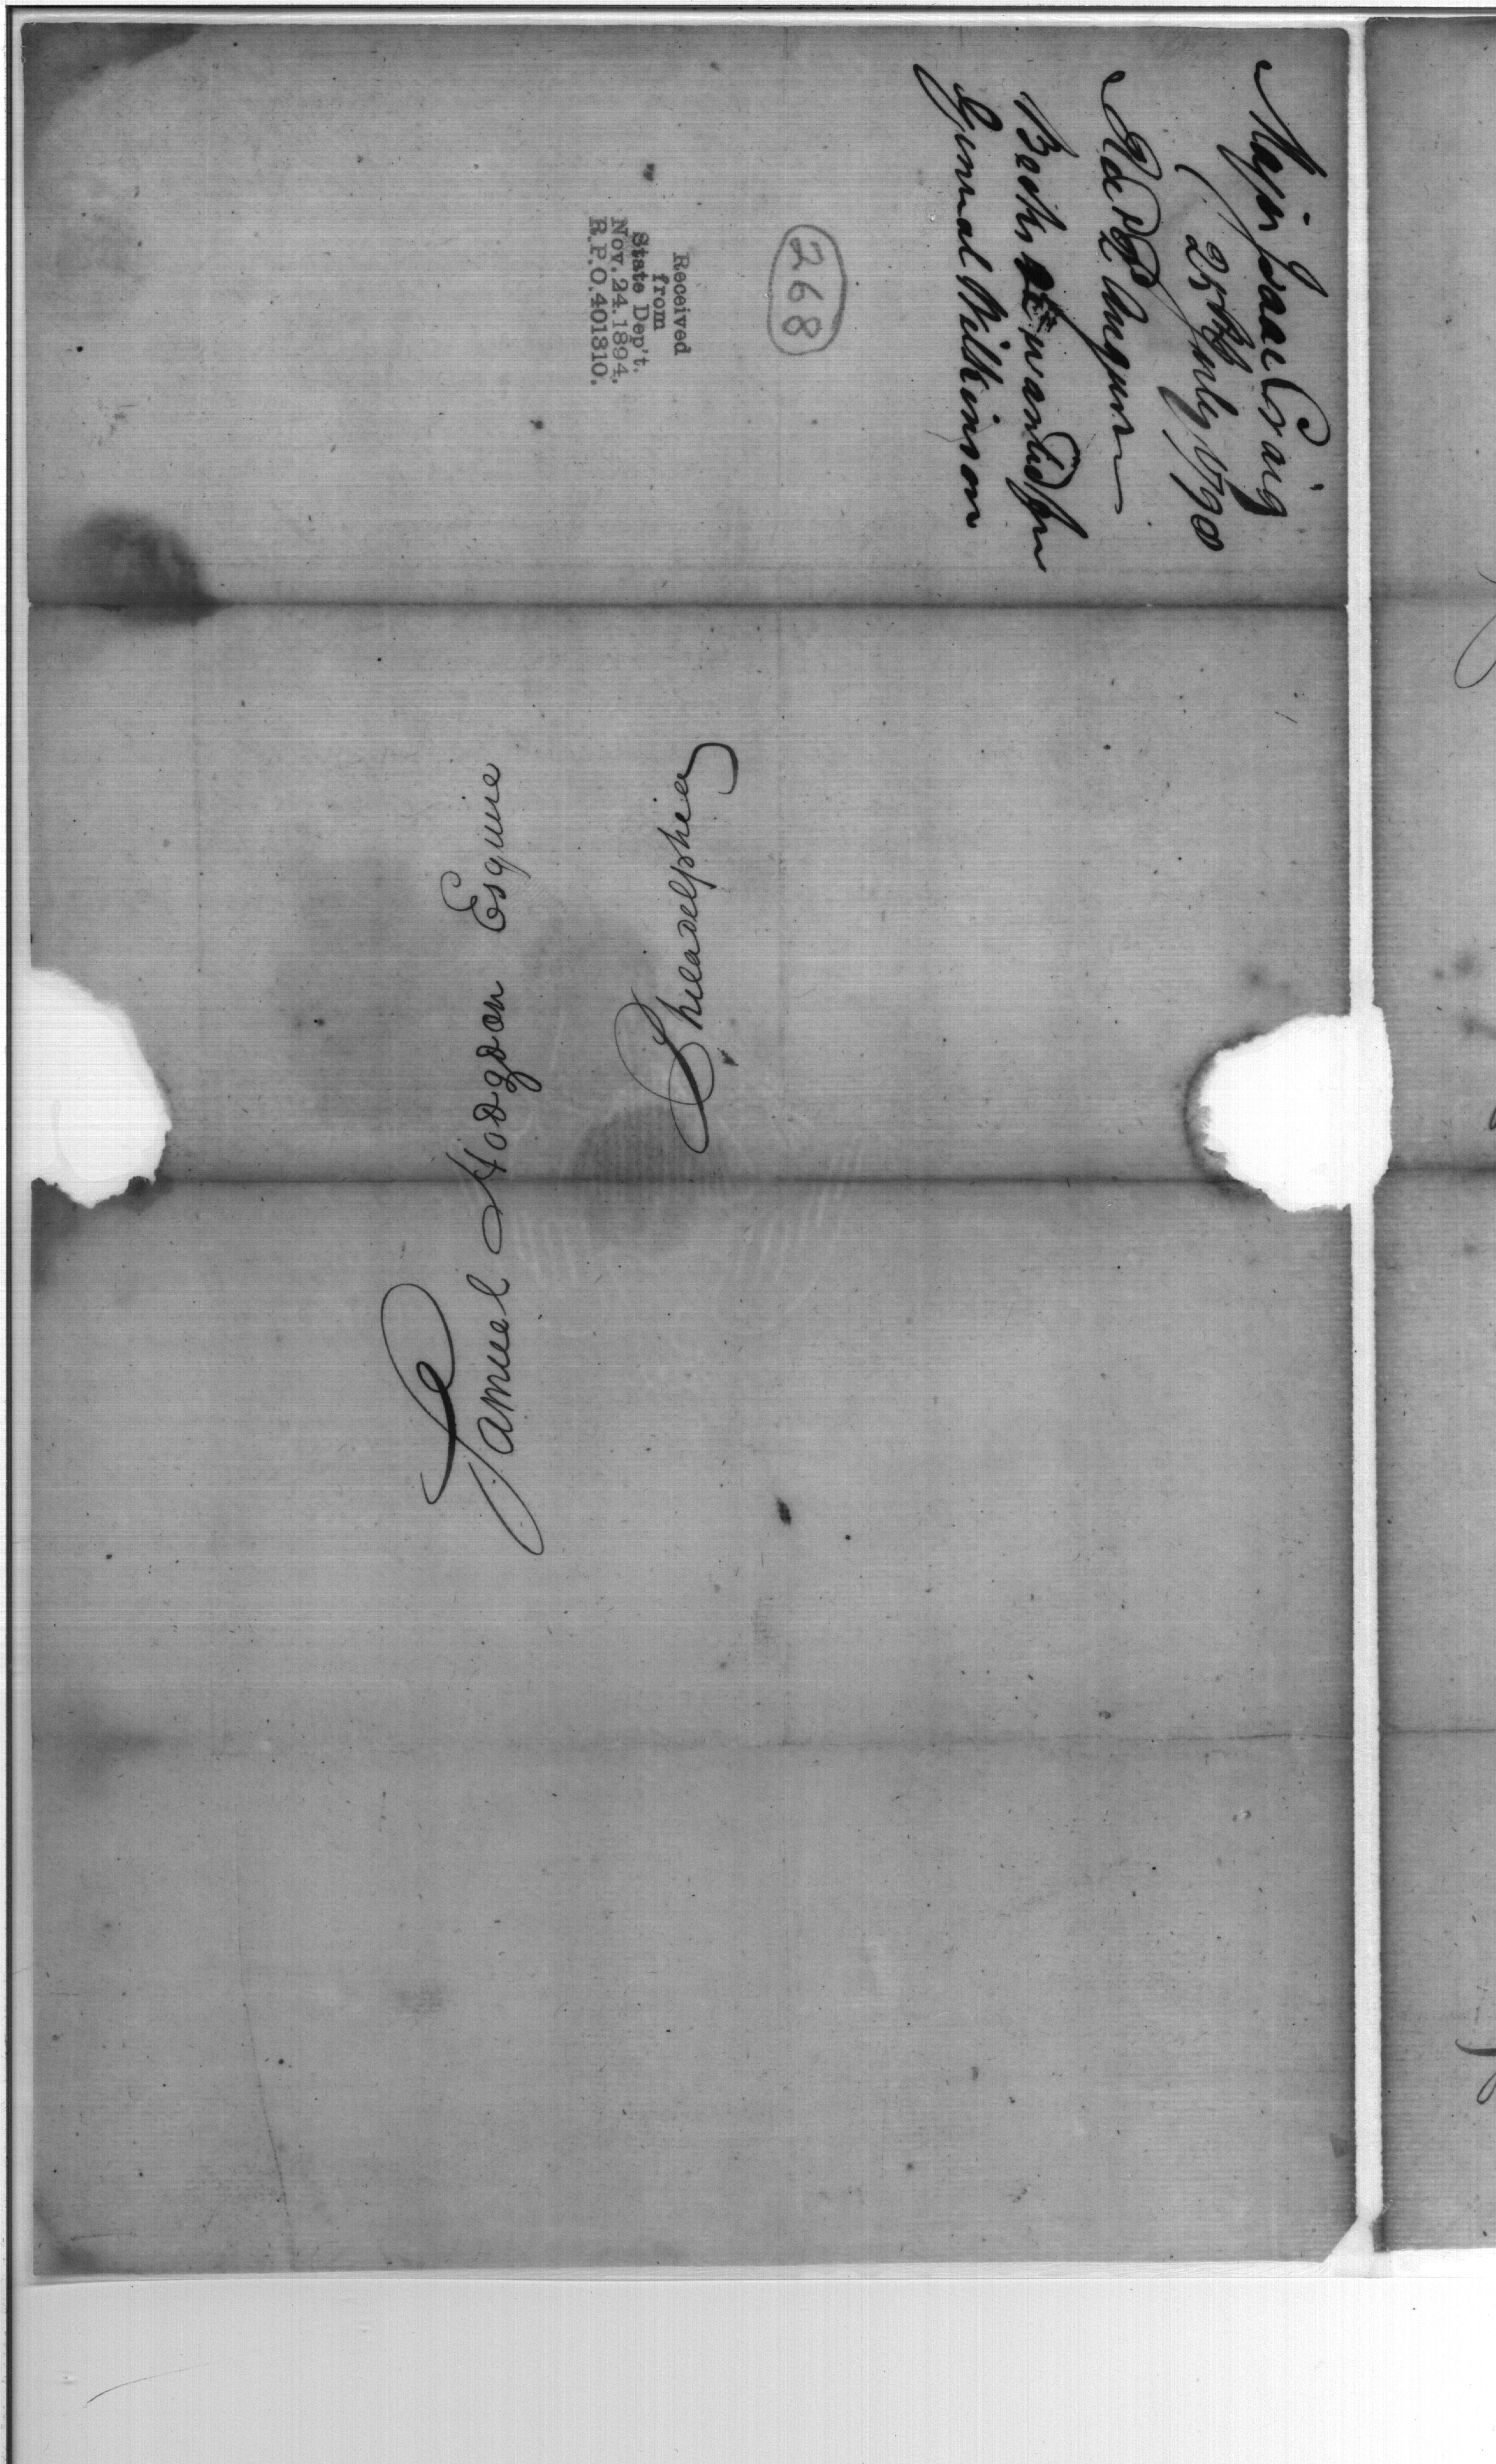 Major Isaac Craig
25th July 1798
Rec'd August
Books &c wanted for
General Wilkinson
268
Received
from
State Dep't.
Nov. 24. 1894.
R.P.O. 401310.
Samuel Hodgdon Esquire
Philadelphia